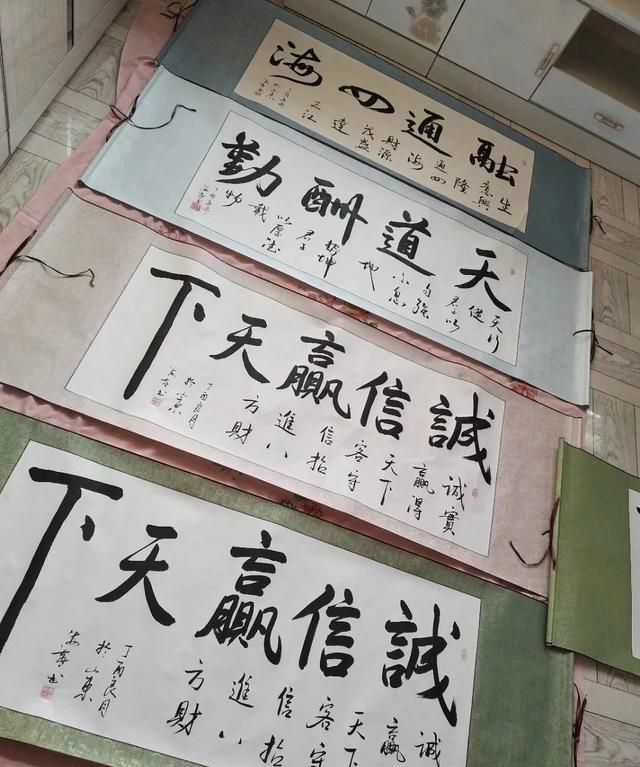 融通四海
生意興隆通四海財源茂盛達三江
天道酬勤
天行健君子以自強不息地勢坤君子以厚德載物
誠信贏天下
誠實贏得天下客守信招進八方財
丁酉良月
於山東
誠信贏天下
誠
贏
天下
客守
信招
進八
方財
丁酉良月
於山東